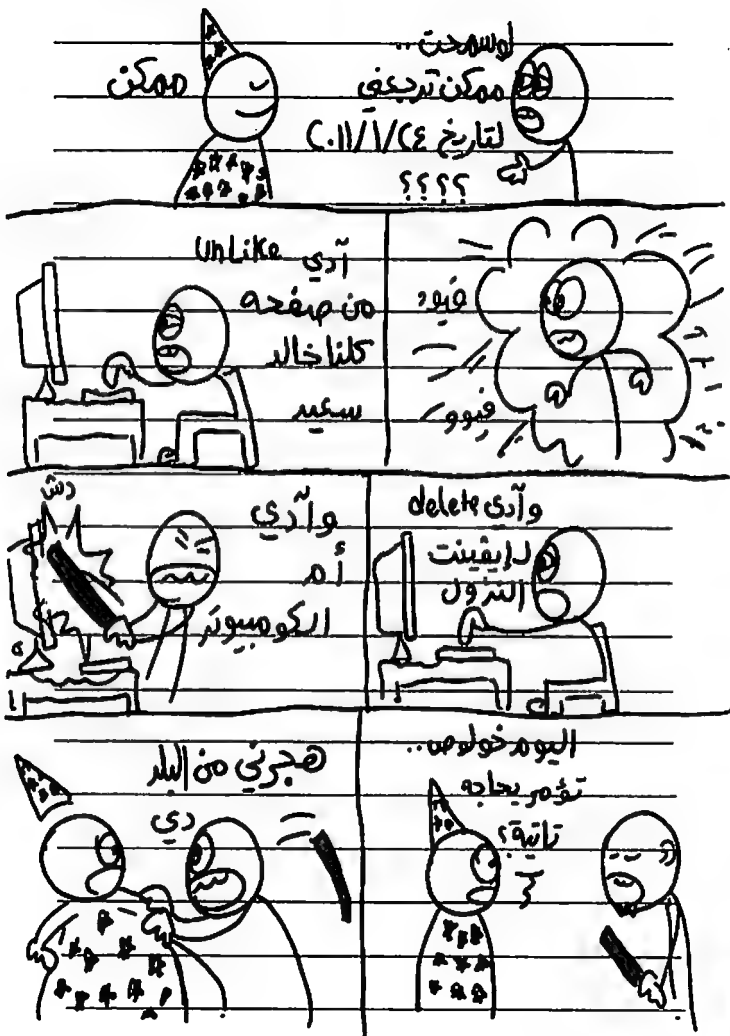 لوسمحت..
ممكن ترجعني
لتاريخ ٢٠١١/١/٢٤
؟؟؟؟
ممكن
ڤيوو
ڤيوو
آدي unLike
من صفحه
كلنا خالد
سعيد
وآدي delete
لإيڤينت
النزول
وآدي
أم
الكومبيوتر
دش
اليوم خولوص..
تؤمر بحاجه
تانية؟
هجرني من البلد
دي